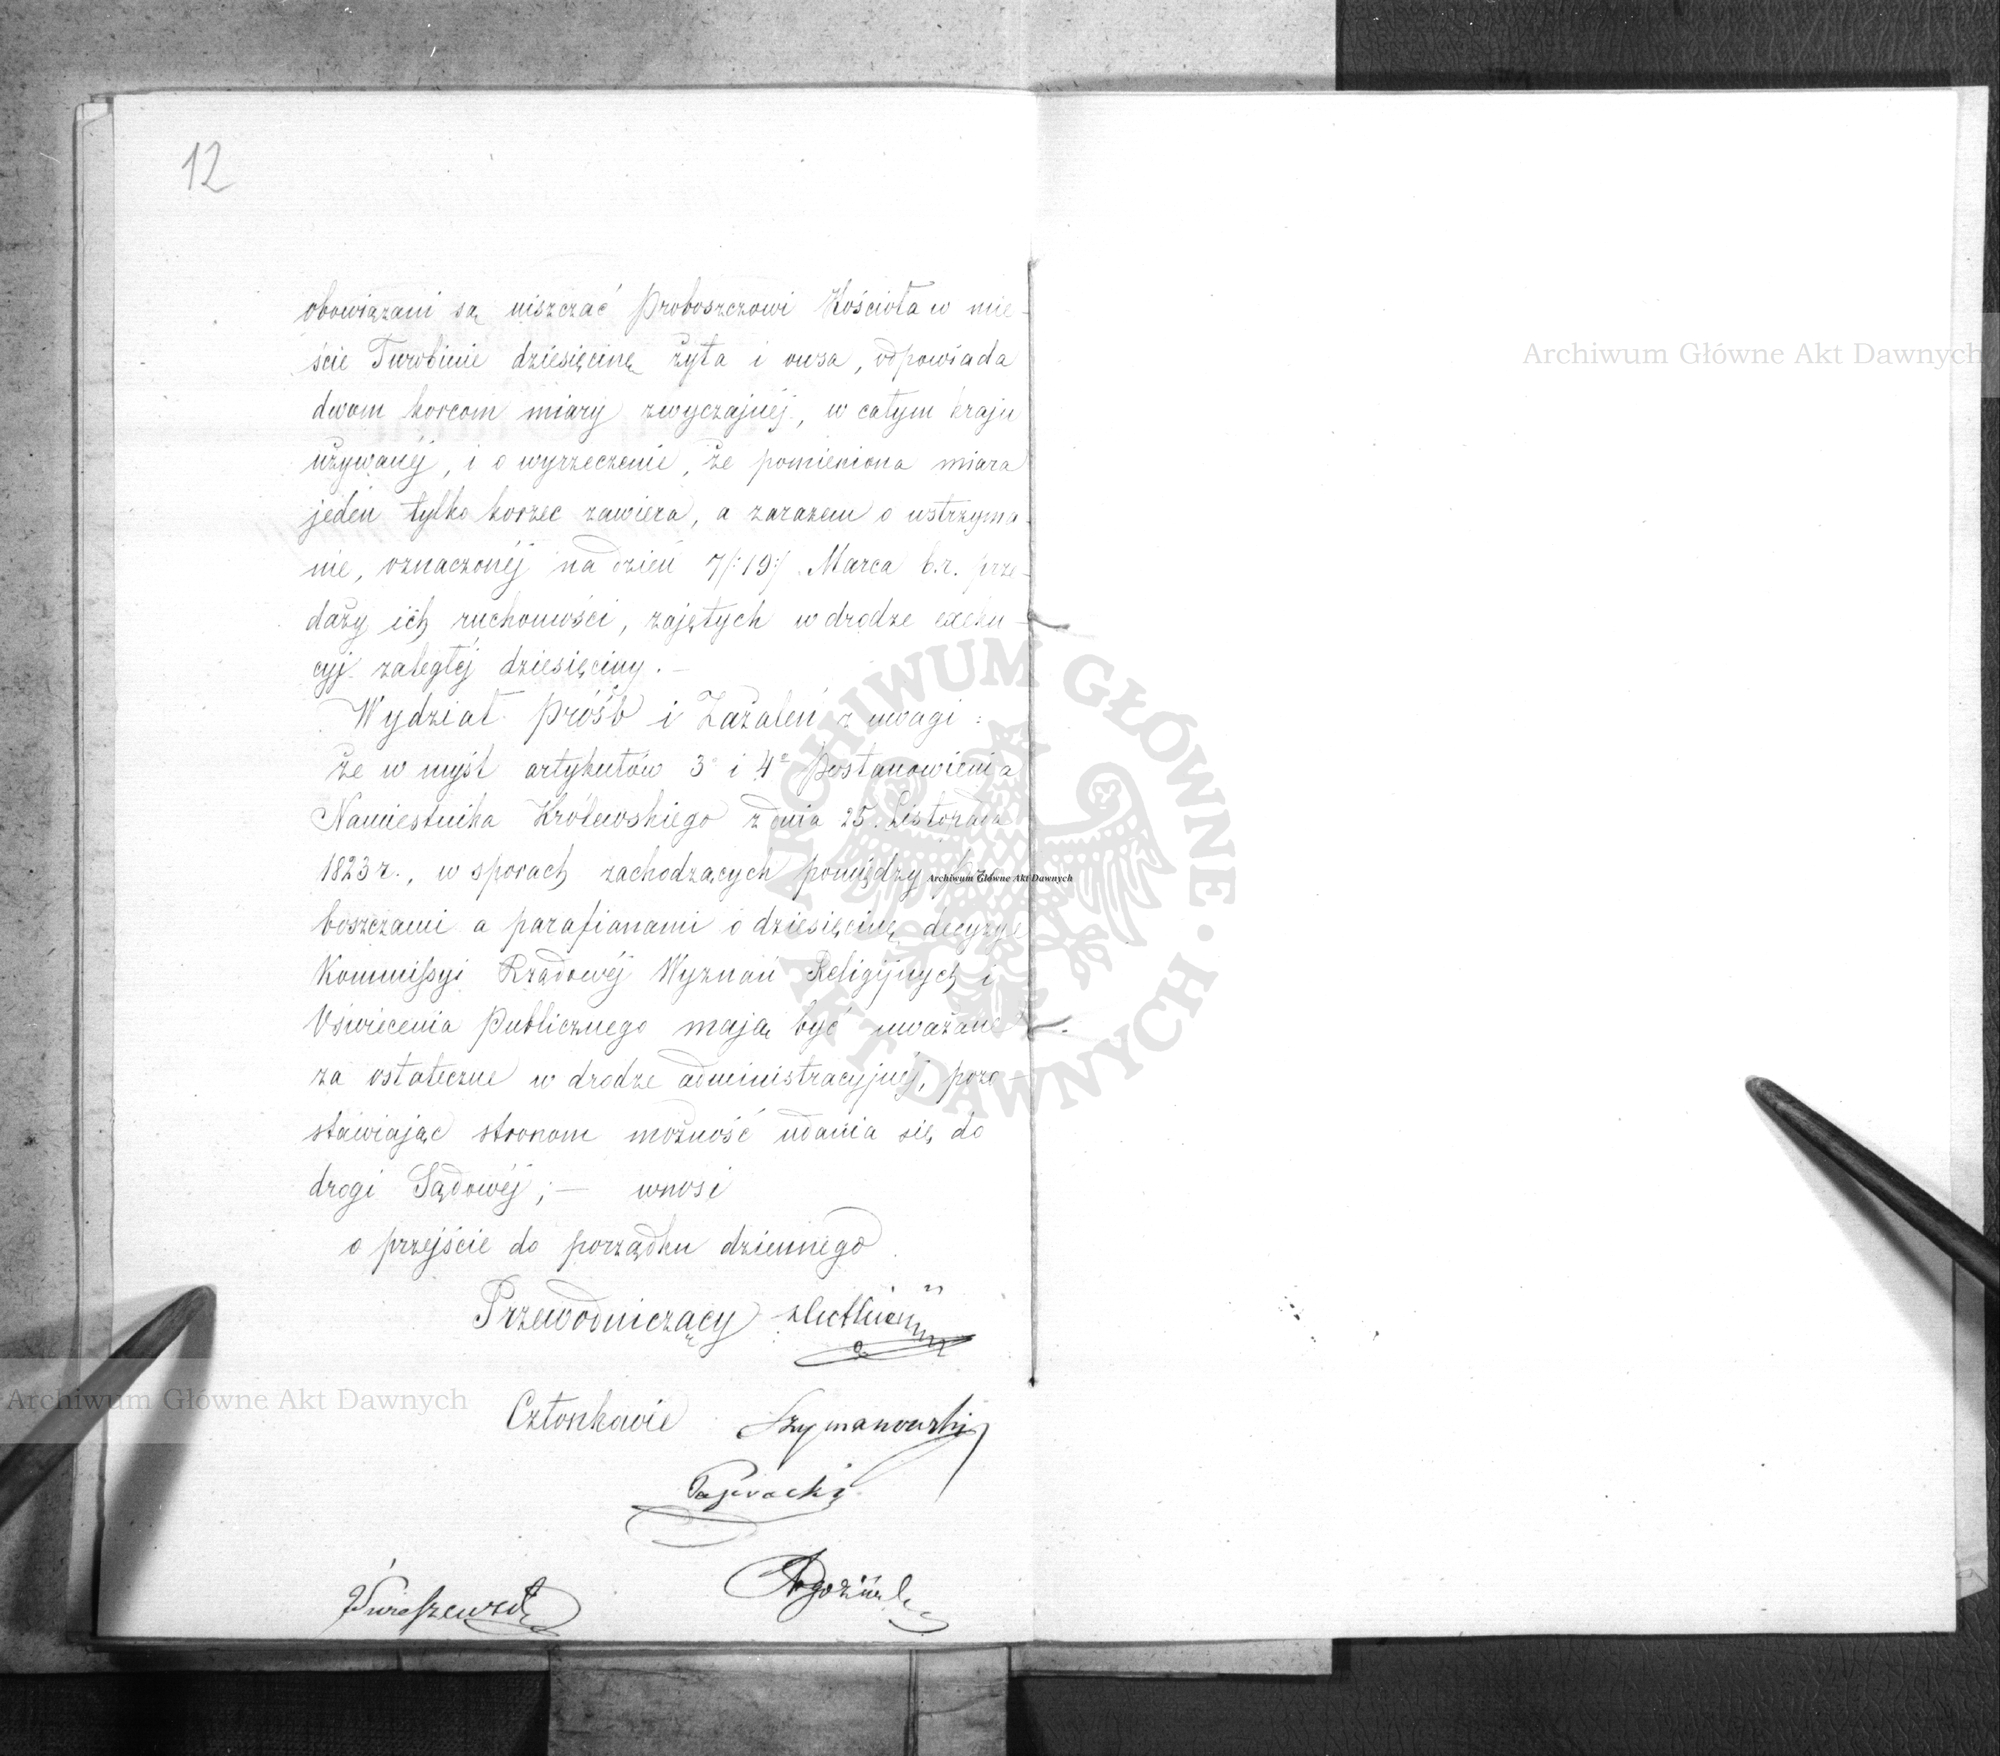 12
obowiązani są uiszczać Proboszczowi Kościoła w mie-
ście Turobinie dziesięcinę żyta i owsa, odpowiada
dwom korcom miary zwyczajnéj, w całym kraju
używanéj, i o wyrzeczenie, że pomieniona miara
jeden tylko korzec zawiera, a zarazem o wstrzyma-
nie, oznaczonéj na dzień 7/:19:/ Marca b.r. prze-
daży ich ruchomości, zajętych w drodze exeku-
cyi zaległéj dziesięciny. —
Wydział Próśb i Zażaleń z uwagi:
że w myśl artykułów 3o i 4o Postanowienia
Namiestnika Królewskiego z dnia 25. Listopada
1823 r., w sporach zachodzących pomiędzy Pro-
boszczami a parafianami o dziesięcinę, decyzye
Kommissyi Rządowéj Wyznań Religijnych i
Oświecenia Publicznego mają być uważane
za ostateczne w drodze administracyjnéj, pozo-
stawiając stronom możność udania się do
drogi Sądowéj; — wnosi
o przejście do porządku dziennego
Przewodniczący
Członkowie Szymanowski
Archiwum Główne Akt Dawnych
Archiwum Główne Akt Dawnych
Archiwum Główne Akt Dawnych
ARCHIWUM GŁÓWNE • AKT DAWNYCH •